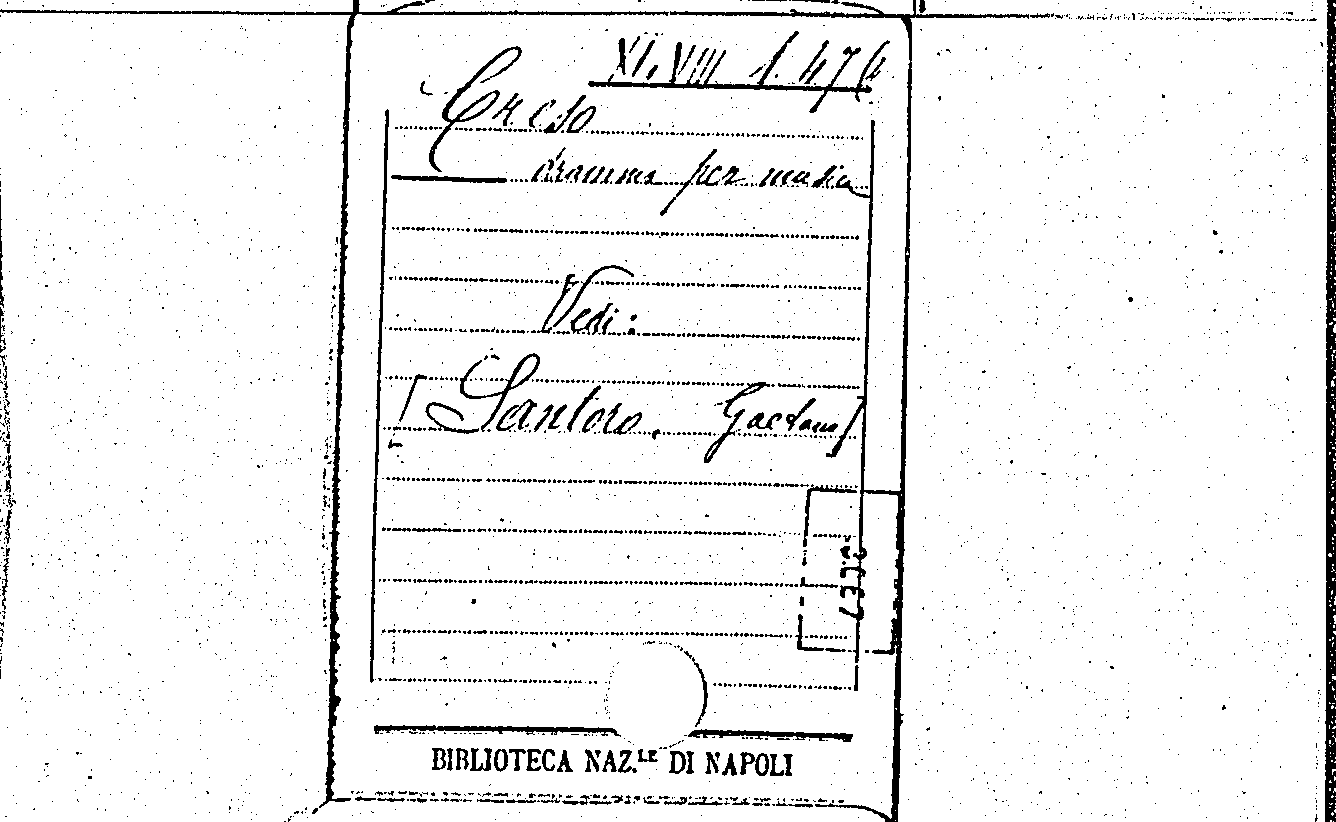 XLVIII 1. 47 (4
Creso
dramma per musica
Vedi:
[Santoro, Gaetano]
BIBLIOTECA NAZ.LE DI NAPOLI